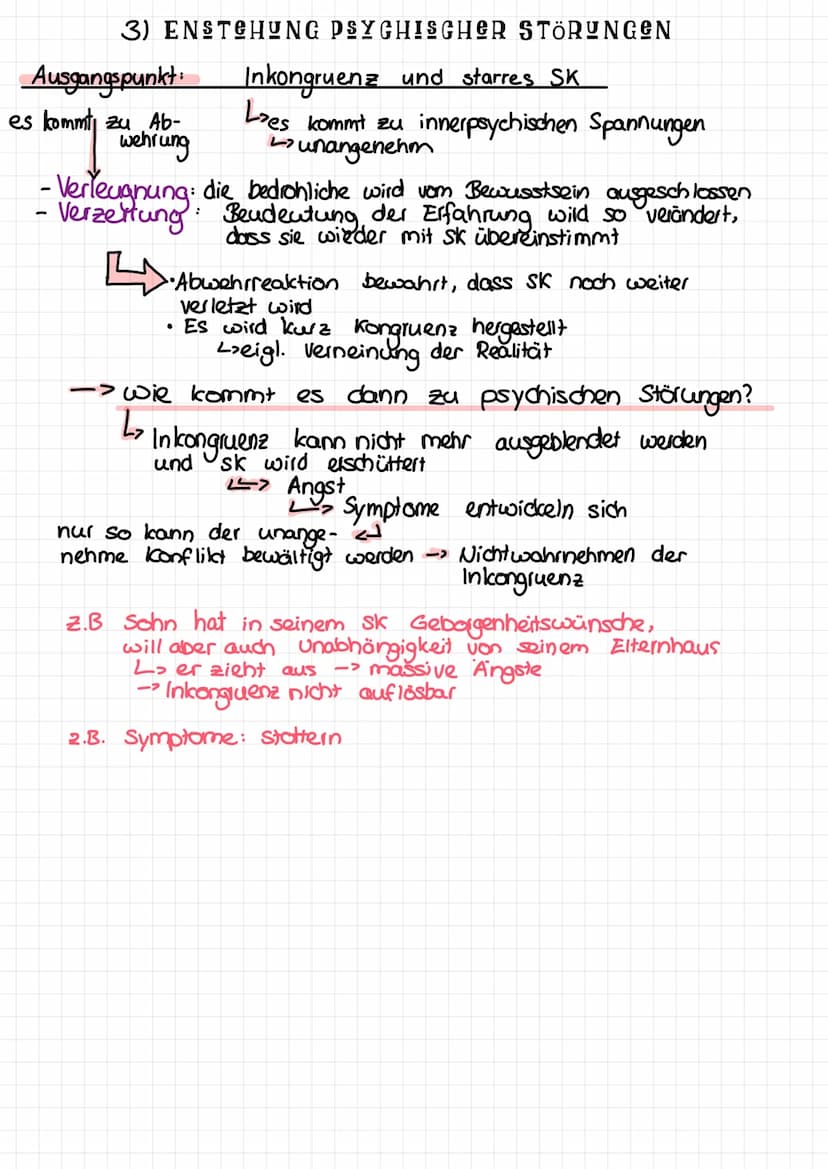 3) ENSTEHUNG PSYCHISCHER STÖRUNGEN
Ausgangspunkt: Inkongruenz und starres SK
es kommt zu Ab-
wehrung
↳es kommt zu innerpsychischen Spannungen
↳unangenehm
- Verleugnung: die bedrohliche wird vom Bewusstsein ausgeschlossen
- Verzerrung: Beudeutung der Erfahrung wird so verändert,
dass sie wieder mit SK übereinstimmt
↳ •Abwehrreaktion bewahrt, dass SK noch weiter
verletzt wird
• Es wird kurz Kongruenz hergestellt
↳eigl. Verneinung der Realität
—> wie kommt es dann zu psychischen Störungen?
↳ Inkongruenz kann nicht mehr ausgeblendet werden
und SK wird erschüttert
↳> Angst
↳ Symptome entwickeln sich
nur so kann der unange- ↵
nehme Konflikt bewältigt werden —> Nichtwahrnehmen der
Inkongruenz
z.B Sohn hat in seinem SK Geborgenheitswünsche,
will aber auch Unabhängigkeit von seinem Elternhaus
↳ er zieht aus —> massive Ängste
—> Inkongruenz nicht auflösbar
z.B. Symptome: stottern